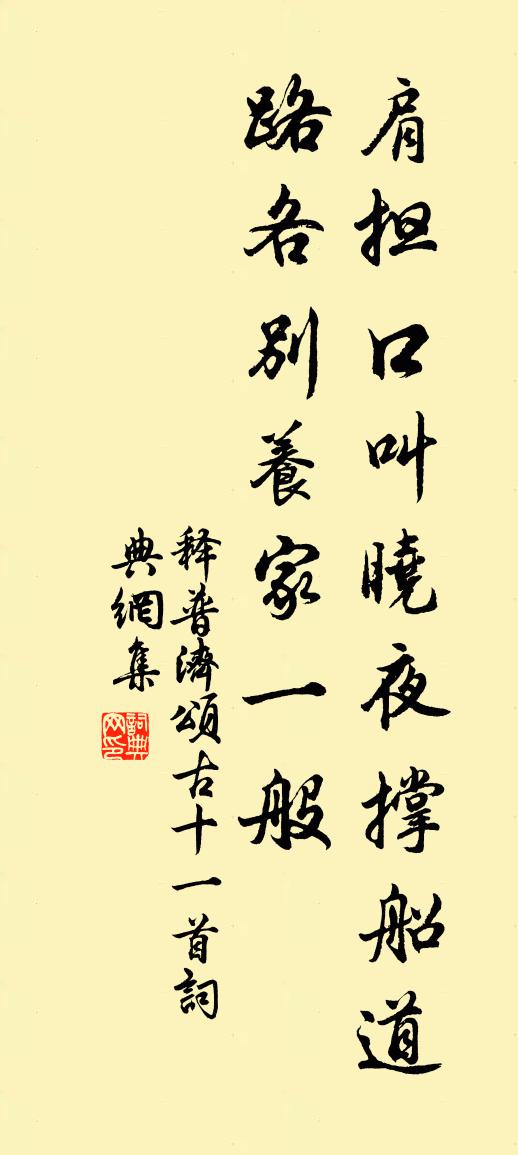 肩担口叫曉夜撑船道
路各别養家一般
释普濟頌古十一首詞
典網集
詞典网印